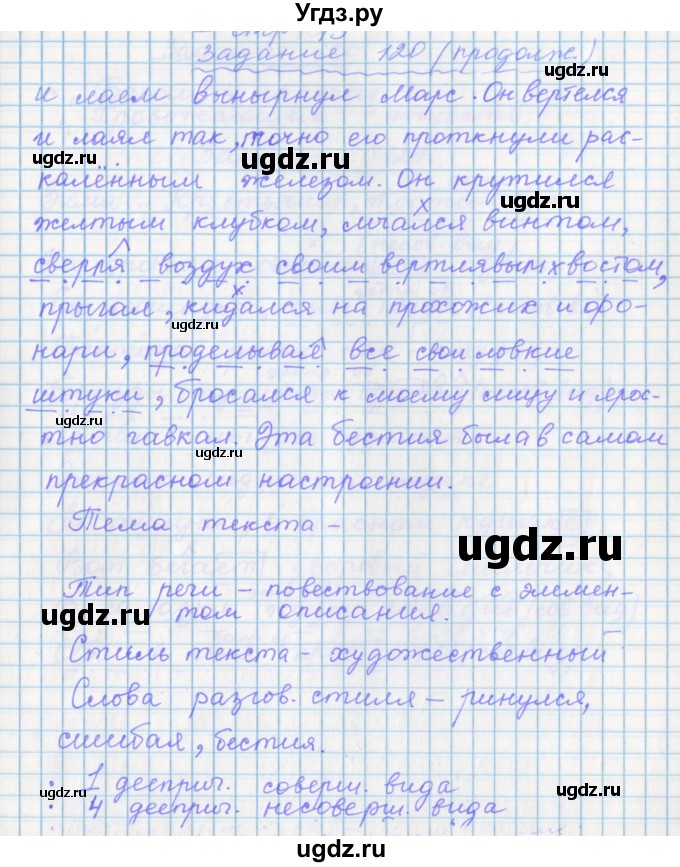 Угдз.ру
стр 15
Задание 120 (продолж)
и лаем вынырнул Марс. Он вертелся
и лаял так, точно его проткнули рас-
калённым железом. Он крутился
желтым клубком, мчался винтом,
сверля воздух своим вертлявым хвостом,
прыгал, кидался на прохожих и фо-
нари, проделывал все свои ловкие
штуки, бросался к моему лицу и ярос-
тно гавкал. Эта бестия была в самом
прекрасном настроении.
Тема текста -
Тип речи - повествование с элемен-
том описания.
Стиль текста - художественный
Слова разгов. стиля - ринулся,
сшибая, бестия.
1 дееприч. соверш. вида
4 дееприч. несоверш. вида
ugdz.ru
ugdz.ru
ugdz.ru
ugdz.ru
ugdz.ru
ugdz.ru
ugdz.ru
ugdz.ru
ugdz.ru
ugdz.ru
ugdz.ru
ugdz.ru
ugdz.ru